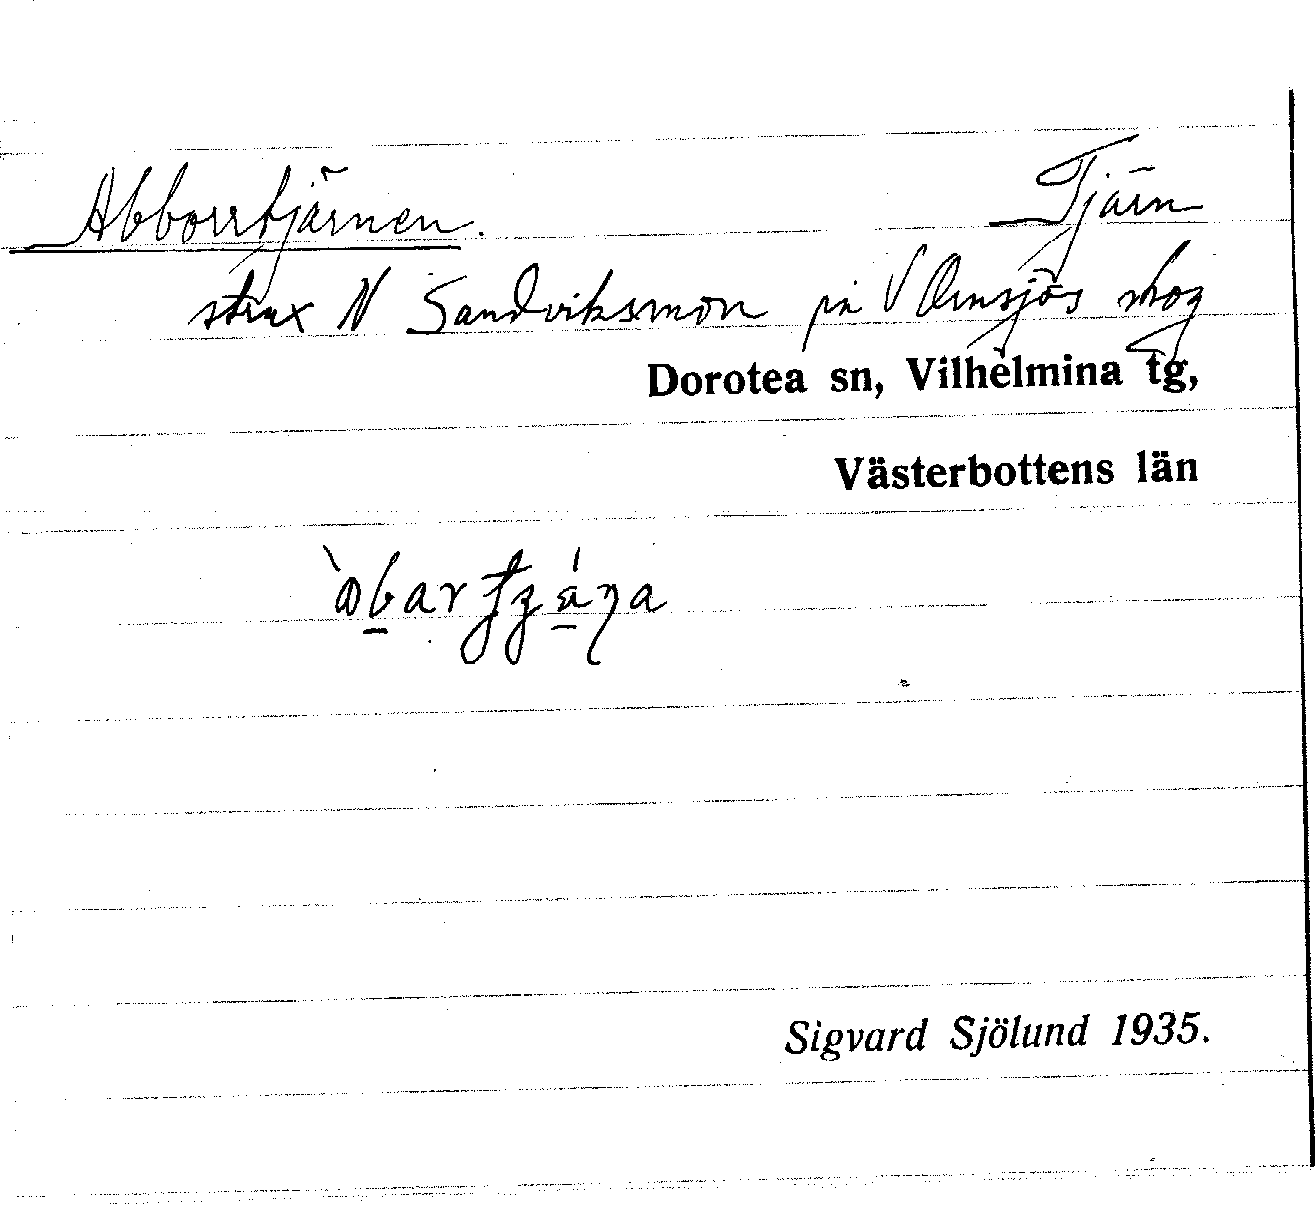 Abborrtjärnen. Tjärn
strax N Sandviksmon på V Ormsjös skog
Dorotea sn, Vilhelmina tg,
Västerbottens län
Sigvard Sjölund 1935.